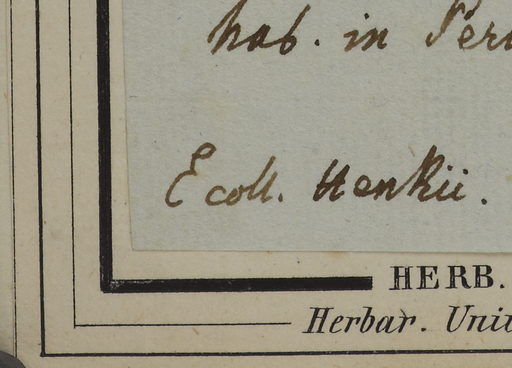 hab. in Peru
E coll. Henkii.
HERB.
Herbar. Univ